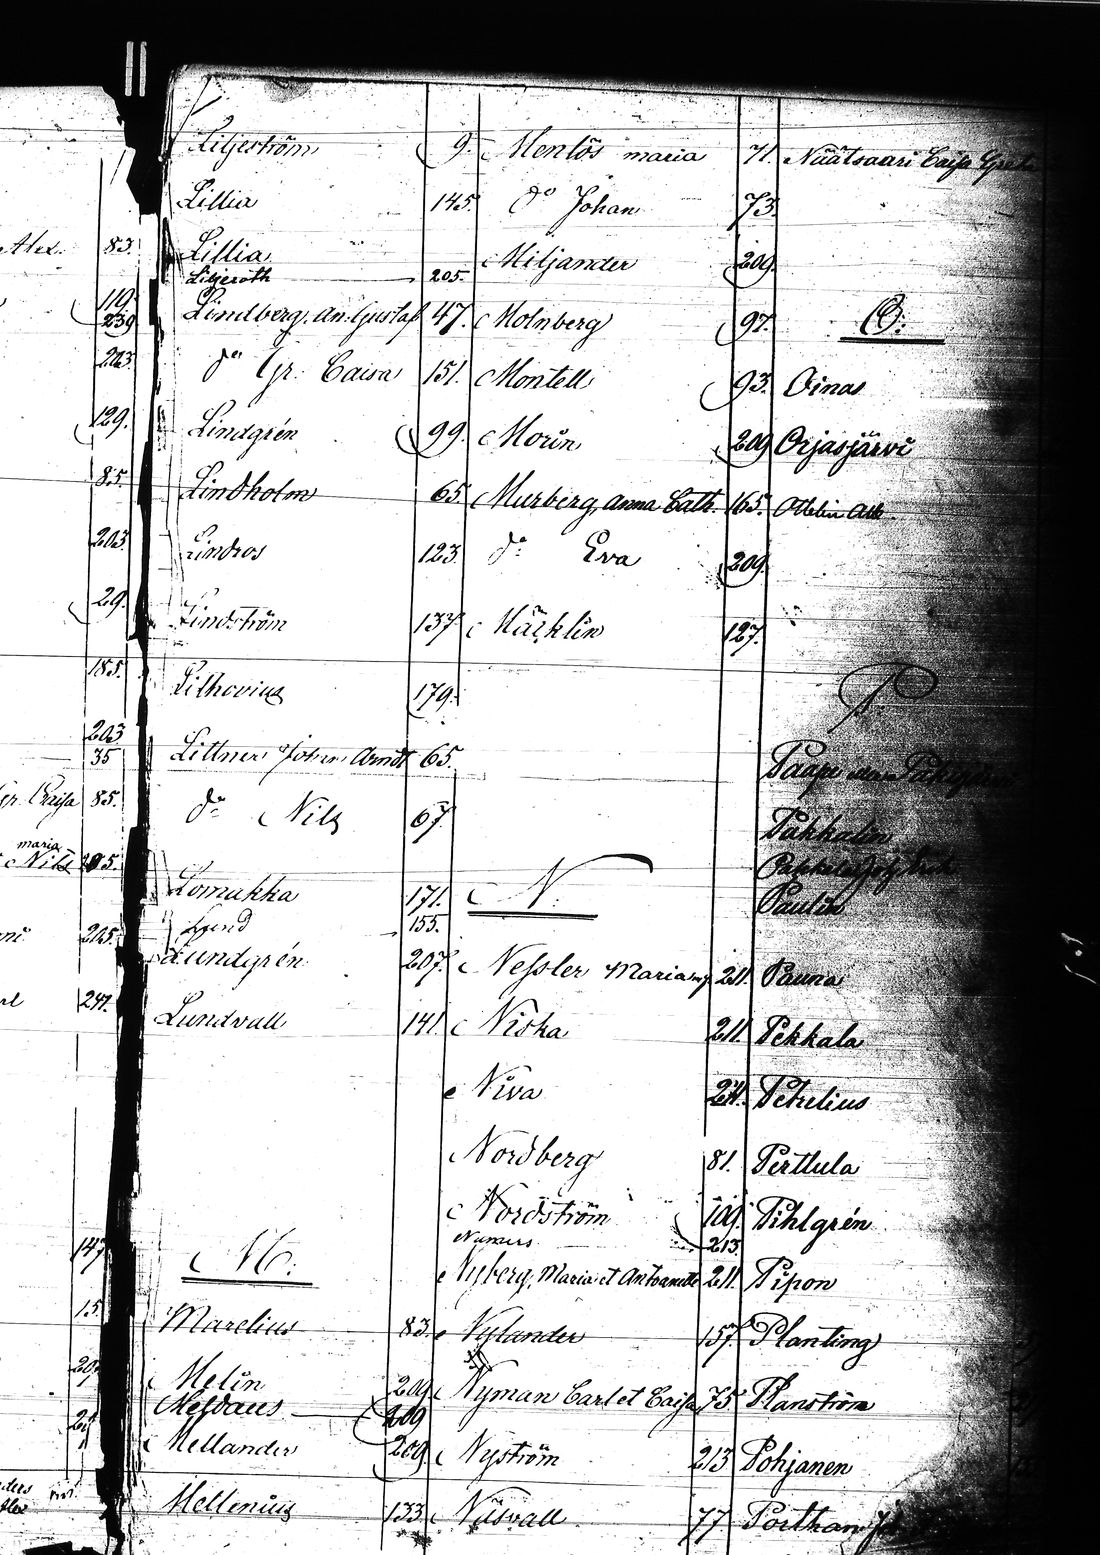 Liljeström 9.
Lillia 145.
Lillia
Liljeroth 205.
Lindberg, An. Gustaf 47.
d:o Gr. Caisa 151.
Lindgrén 99.
Lindholm 65
Lindros 123.
Lindström 137
Lithovius 179.
Littner Johan Arndt 65.
d:o Nils 67
Lomakka 171.
Lund 155.
Lundgrén 207.
Lundvall 141.
M.
Marelius 83.
Melin 209.
209
Mellander 209.
Mellenius 133.
Mentös maria 71.
d:o Johan 73.
Miljander 209.
Molnberg 97.
Montell 93.
Morin 209
Murberg, Anna Cath. 165.
d:o Eva 209.
Mäcklin 127.
N.
Nessler Maria 211.
Niska 211.
Niva 211.
Nordberg 81.
Nordström 109.
Numers 213.
Nyberg, Maria et Antoanette 211.
Nylander 157.
Nyman Carl et Caisa 75
Nyström 213
Näsvall 77
Näätsaari Caisa Greta
O.
Oinas
Orjasjärvi
Ottelin
P.
Paape
Pakkalin
Pakkala
Paulin
Pauna
Pekkala
Petrelius
Perttula
Pihlgrén
Pipon
Planting
Planström
Pohjanen
Porthan
Alex. 83.
119.
239
203.
129.
85.
203.
29.
185.
203
35
Gr. Caisa 85.
maria
Nils 205.
205.
247.
147
15.
207